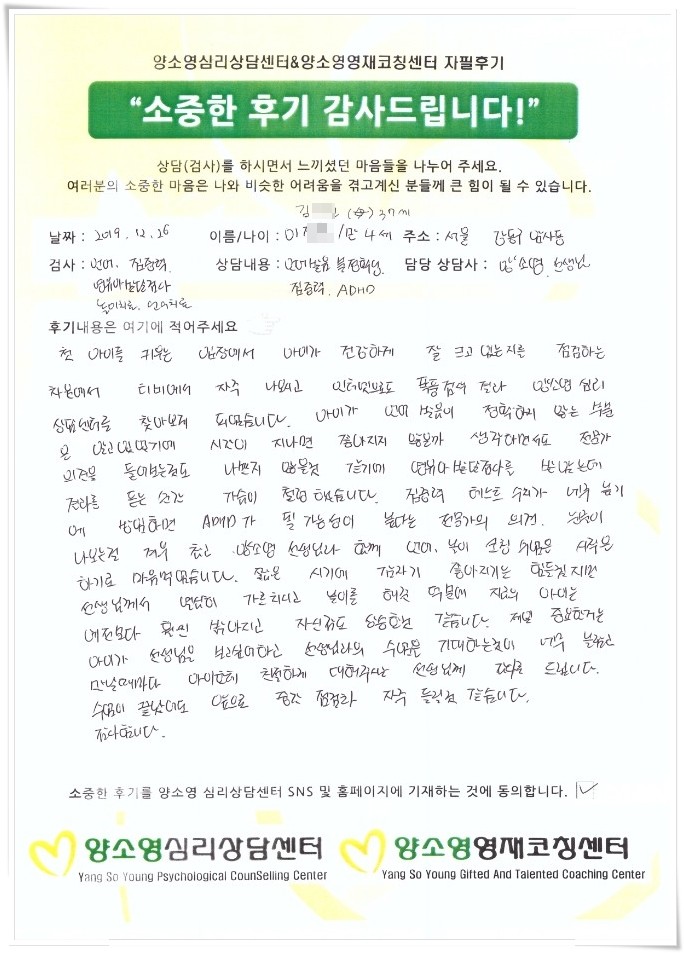 양소영심리상담센터&양소영영재코칭센터 자필후기
“소중한 후기 감사드립니다!”
상담(검사)를 하시면서 느끼셨던 마음들을 나누어 주세요.
여러분의 소중한 마음은 나와 비슷한 어려움을 겪고계신 분들께 큰 힘이 될 수 있습니다.
김 (女) 37세
날짜 : 2019. 12. 26 이름/나이 : 이 /만 4세 주소 : 서울 강동구
검사 : 언어, 집중력, 상담내용 : 언어발음 불정확성, 담당 상담사 : 양소영 선생님
영유아발달검사 집중력, ADHD
놀이치료, 언어치료
후기내용은 여기에 적어주세요
첫 아이를 키우는 입장에서 아이가 건강하게 잘 크고 있는지를 점검하는
차원에서 티비에서 자주 나오시고 인터넷으로도 폭풍검색 결과 양소영 심리
상담센터를 찾아보게 되었습니다. 아이가 언어 발음이 정확하지 않는 부분
은 알고있었기에 시간이 지나면 좋아지지 않을까 생각하면서도 전문가
의견을 들어보는것도 나쁘지 않을것 같기에 영유아발달검사를 받았는데
결과를 듣는 순간 가슴이 철렁했습니다. 집중력 테스트 수치가 너무 낮기
에 방임하면 ADHD가 될 가능성이 높다는 전문가의 의견. 눈물이
나오는걸 겨우 참고 양소영 선생님과 함께 언어, 놀이 코칭 수업은 시작은
하기로 마음먹었습니다. 짧은 시기에 갑자기 좋아지기는 힘들겠지만
선생님께서 열심히 가르치시고 놀이를 해준 덕분에 지금의 아이는
예전보다 훨씬 밝아지고 자신감도 상승한것 같습니다. 제일 중요한거는
아이가 선생님을 보고싶어하고 선생님과의 수업을 기대하는것이 너무
만날때마다 아이한테 친절하게 대해주시는 선생님께 감사를 드립니다.
수업이 끝났어도 앞으로 중간 점검차 자주 들릴것 같습니다.
감사합니다.
소중한 후기를 양소영 심리상담센터 SNS 및 홈페이지에 기재하는 것에 동의합니다.
양소영심리상담센터 양소영영재코칭센터
Yang So Young Psychological CounSelling Center Yang So Young Gifted And Talented Coaching Center